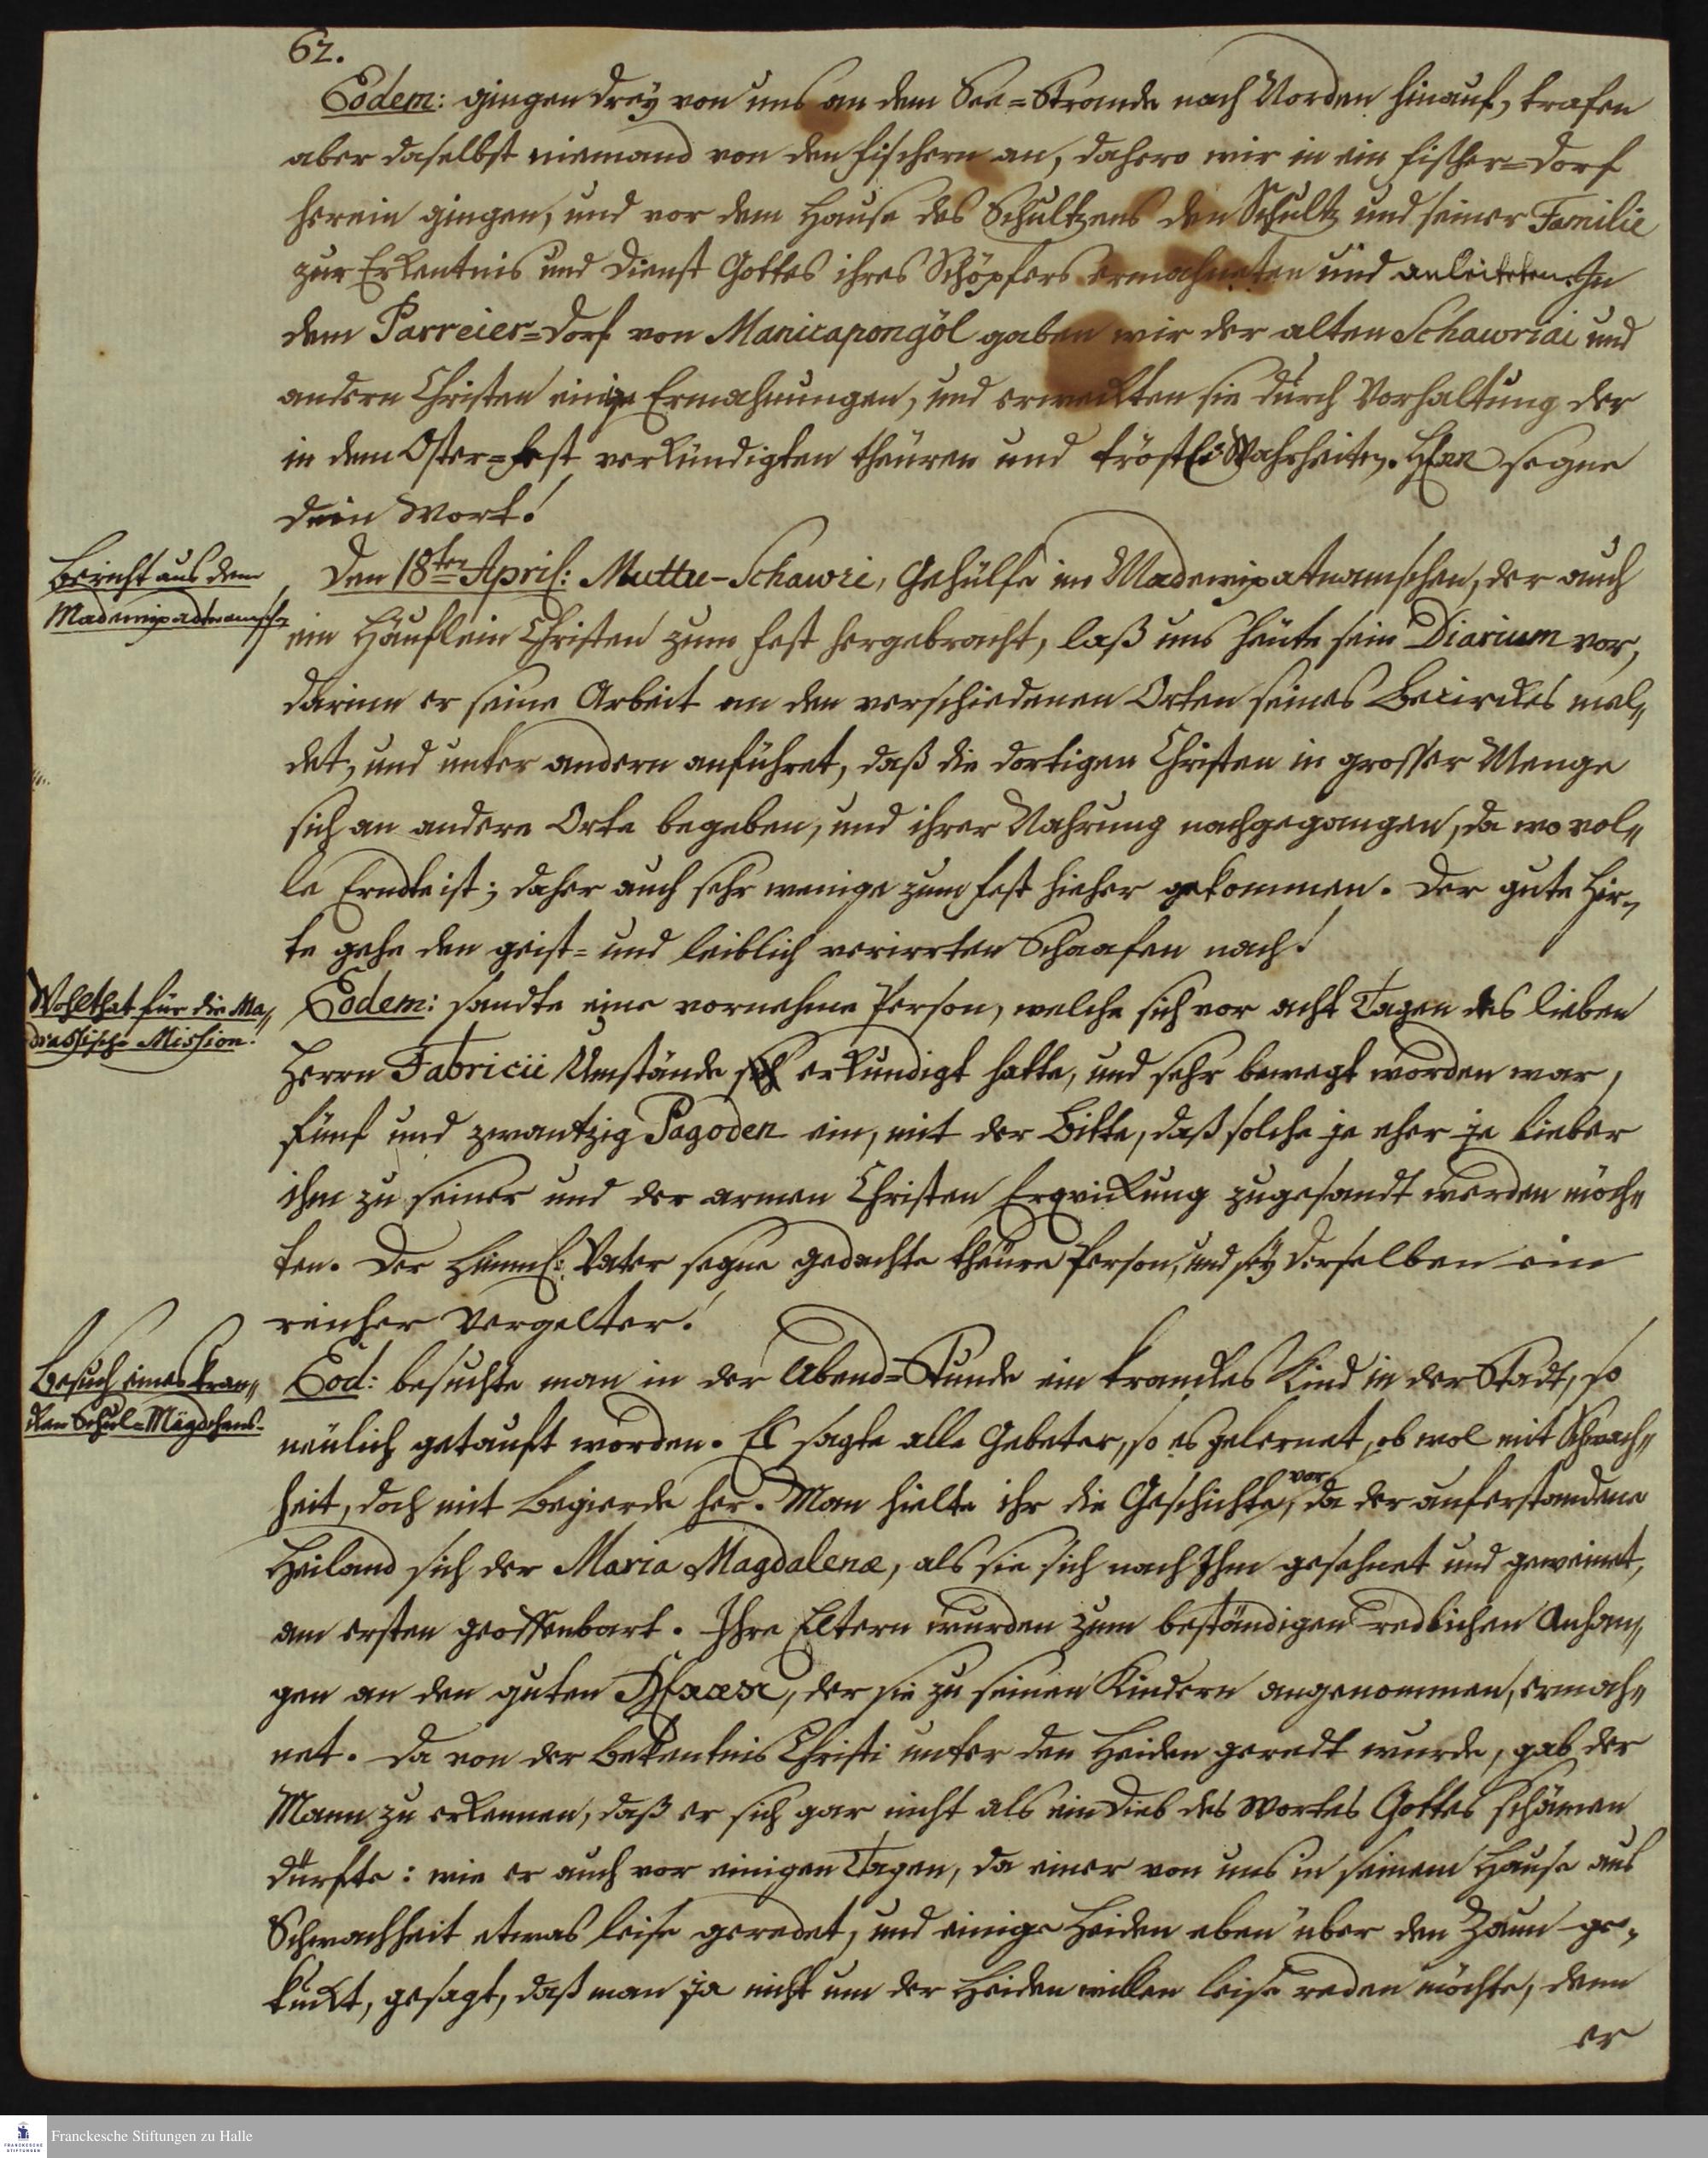 62.
Eodem: gingen drey von uns an dem See=Strande nach Norden hinauf, trafen
aber daselbst niemand von den Fischern an, dahero wir in ein Fischer=Dorf
herein gingen, und vor dem Hause des Schultzens den Schultz und seiner Familie
zur Erkentnis und Dienst Gottes ihres Schöpfers ermahneten und anleiteten. In
dem Parreier=Dorf von Manicapongöl gaben wir der alten Schawriai und
andern Christen einige Ermahnungen, und erweckten sie durch Vorhaltung der
in dem Oster=Fest verkündigten theuren und tröstl. Wahrheiten. HErr segne
dein Wort!
Bericht aus dem
Madewipadnamsch.
Den 18ten April: Muttu-Schawri, Gehülfe im Madewipatnamschen, der auch
ein Häuflein Christen zum Fest hergebracht, laß uns heute sein Diarium vor,
darinn er seine Arbeit an den verschiedenen Orten seines Becirckes mel„
det, und unter andern anführet, daß die dortigen Christen in grosser Menge
sich an andere Orte begeben, und ihrer Nahrung nachgegangen, da wo vol„
le Erndte ist; daher auch sehr wenige zum Fest hieher gekommen. Der gute Hir„
te gehe den geist= und leiblich verirrten Schaafen nach!
Wohlthat für die Ma„
drassische Mission.
Eodem: sandte eine vornehme Person, welche sich vor acht Tagen des lieben
Herrn Fabricii Umstände sich erkundigt hatte, und sehr bewegt worden war,
fünf und zwantzig Pagoden ein, mit der Bitte, daß solche je eher je lieber
ihm zu seiner und der armen Christen Erqvickung zugesandt werden möch„
ten. Der himml: Vater segne gedachte theure Person, und sey derselben ein
reicher Vergelter!
Besuch eines kran„
cken Schul=Mägdchens.
Eod: besuchte man in der Abend=Stunde ein kranckes Kind in der Stadt, so
neulich getauft worden. Es sagte alle Gebeter, so es gelernet, ob wol mit Schwach„
heit, doch mit Begierde her. Man hielte ihr die Geschichte vor, da der auferstandene
Heiland sich der Maria Magdalenæ, als sie sich nach Ihm gesehnet und geweinet,
am ersten geoffenbart. Ihre Eltern wurden zum beständigen redlichen Anhan„
gen an den guten HErrn, der sie zu seinen Kindern angenommen, ermah„
net. Da von der Bekentnis Christi unter den Heiden geredt wurde, gab der
Mann zu erkennen, daß er sich gar nicht als ein Dieb des Wortes Gottes schämen
dürfte: wie er auch vor einigen Tagen, da einer von uns in seinem Hause aus
Schwachheit etwas leise geredet, und einige Heiden eben über den Zaun ge„
kuckt, gesagt, daß man ja nicht um der Heiden willen leise reden möchte, denn
er
Franckesche Stiftungen zu Halle